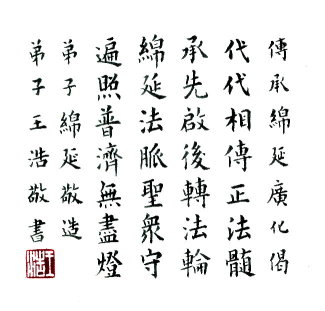 傳承綿延廣化偈
代代相傳正法髓
承先啟後轉法輪
綿延法脈聖眾守
遍照普濟無盡燈
弟子綿延敬造
弟子王浩敬書